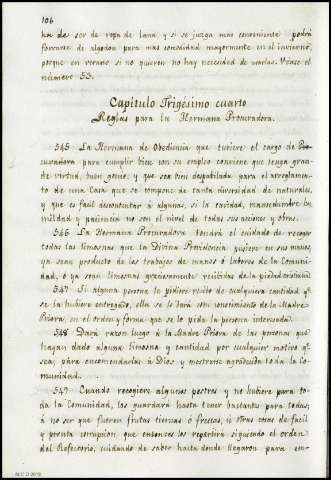 106
ha de ser de ropa de lana y si se juzga mas conveniente podrá
forrarse de algodon para mas comodidad mayormente en el invierno,
porque en verano si no quieren no hay necesidad de usarlas. Véase el
número 53.
Capítulo Trigésimo cuarto
Reglas para la Hermana Procuradora.
545 La Hermana de Obediencia que tuviere el cargo de Pro-
curadora para cumplir bien con su empleo conviene que tenga gran-
de virtud, buen genio; y que sea bien despabilada para el arreglamen-
to de una Casa que se compone de tanta diversidad de naturales,
y que es fácil descontentar á algunas, si la caridad, mansedumbre, hu-
mildad y paciencia no son el nivel de todas sus acciones y obras.
546 La Hermana Procuradora tendrá el cuidado de recoger
todas las limosnas que la Divina Providencia pusiere en sus manos,
ya sean producto de los trabajos de manos ó labores de la Comuni-
dad, ó ya sean limosnas graciosamente recibidas de la piedad cristiana.
547 Si alguna persona le pidiere recibo de cualquiera cantidad qe
se la hubiera entregado, ella se lo dará con conocimiento de la Madre
Priora, en el orden y forma que se lo pida la persona interesada.
548 Dará razon luego á la Madre Priora de las personas que
hagan dado alguna limosna y cantidad por cualquier motivo qe
sea; para encomendarlas á Dios y mostrarse agradecida toda la Co-
munidad.
549 Cuando recogiere algunos postres y no hubiere para to-
da la Comunidad, los guardará hasta tener bastantes para todas;
á no ser que fueren frutas tiernas ó frescas, ú otras cosas de fácil
y pronta corrupcion que entonces los repartirá siguiendo el orden
del Refectorio, cuidando de saber hasta donde llegaron para em-